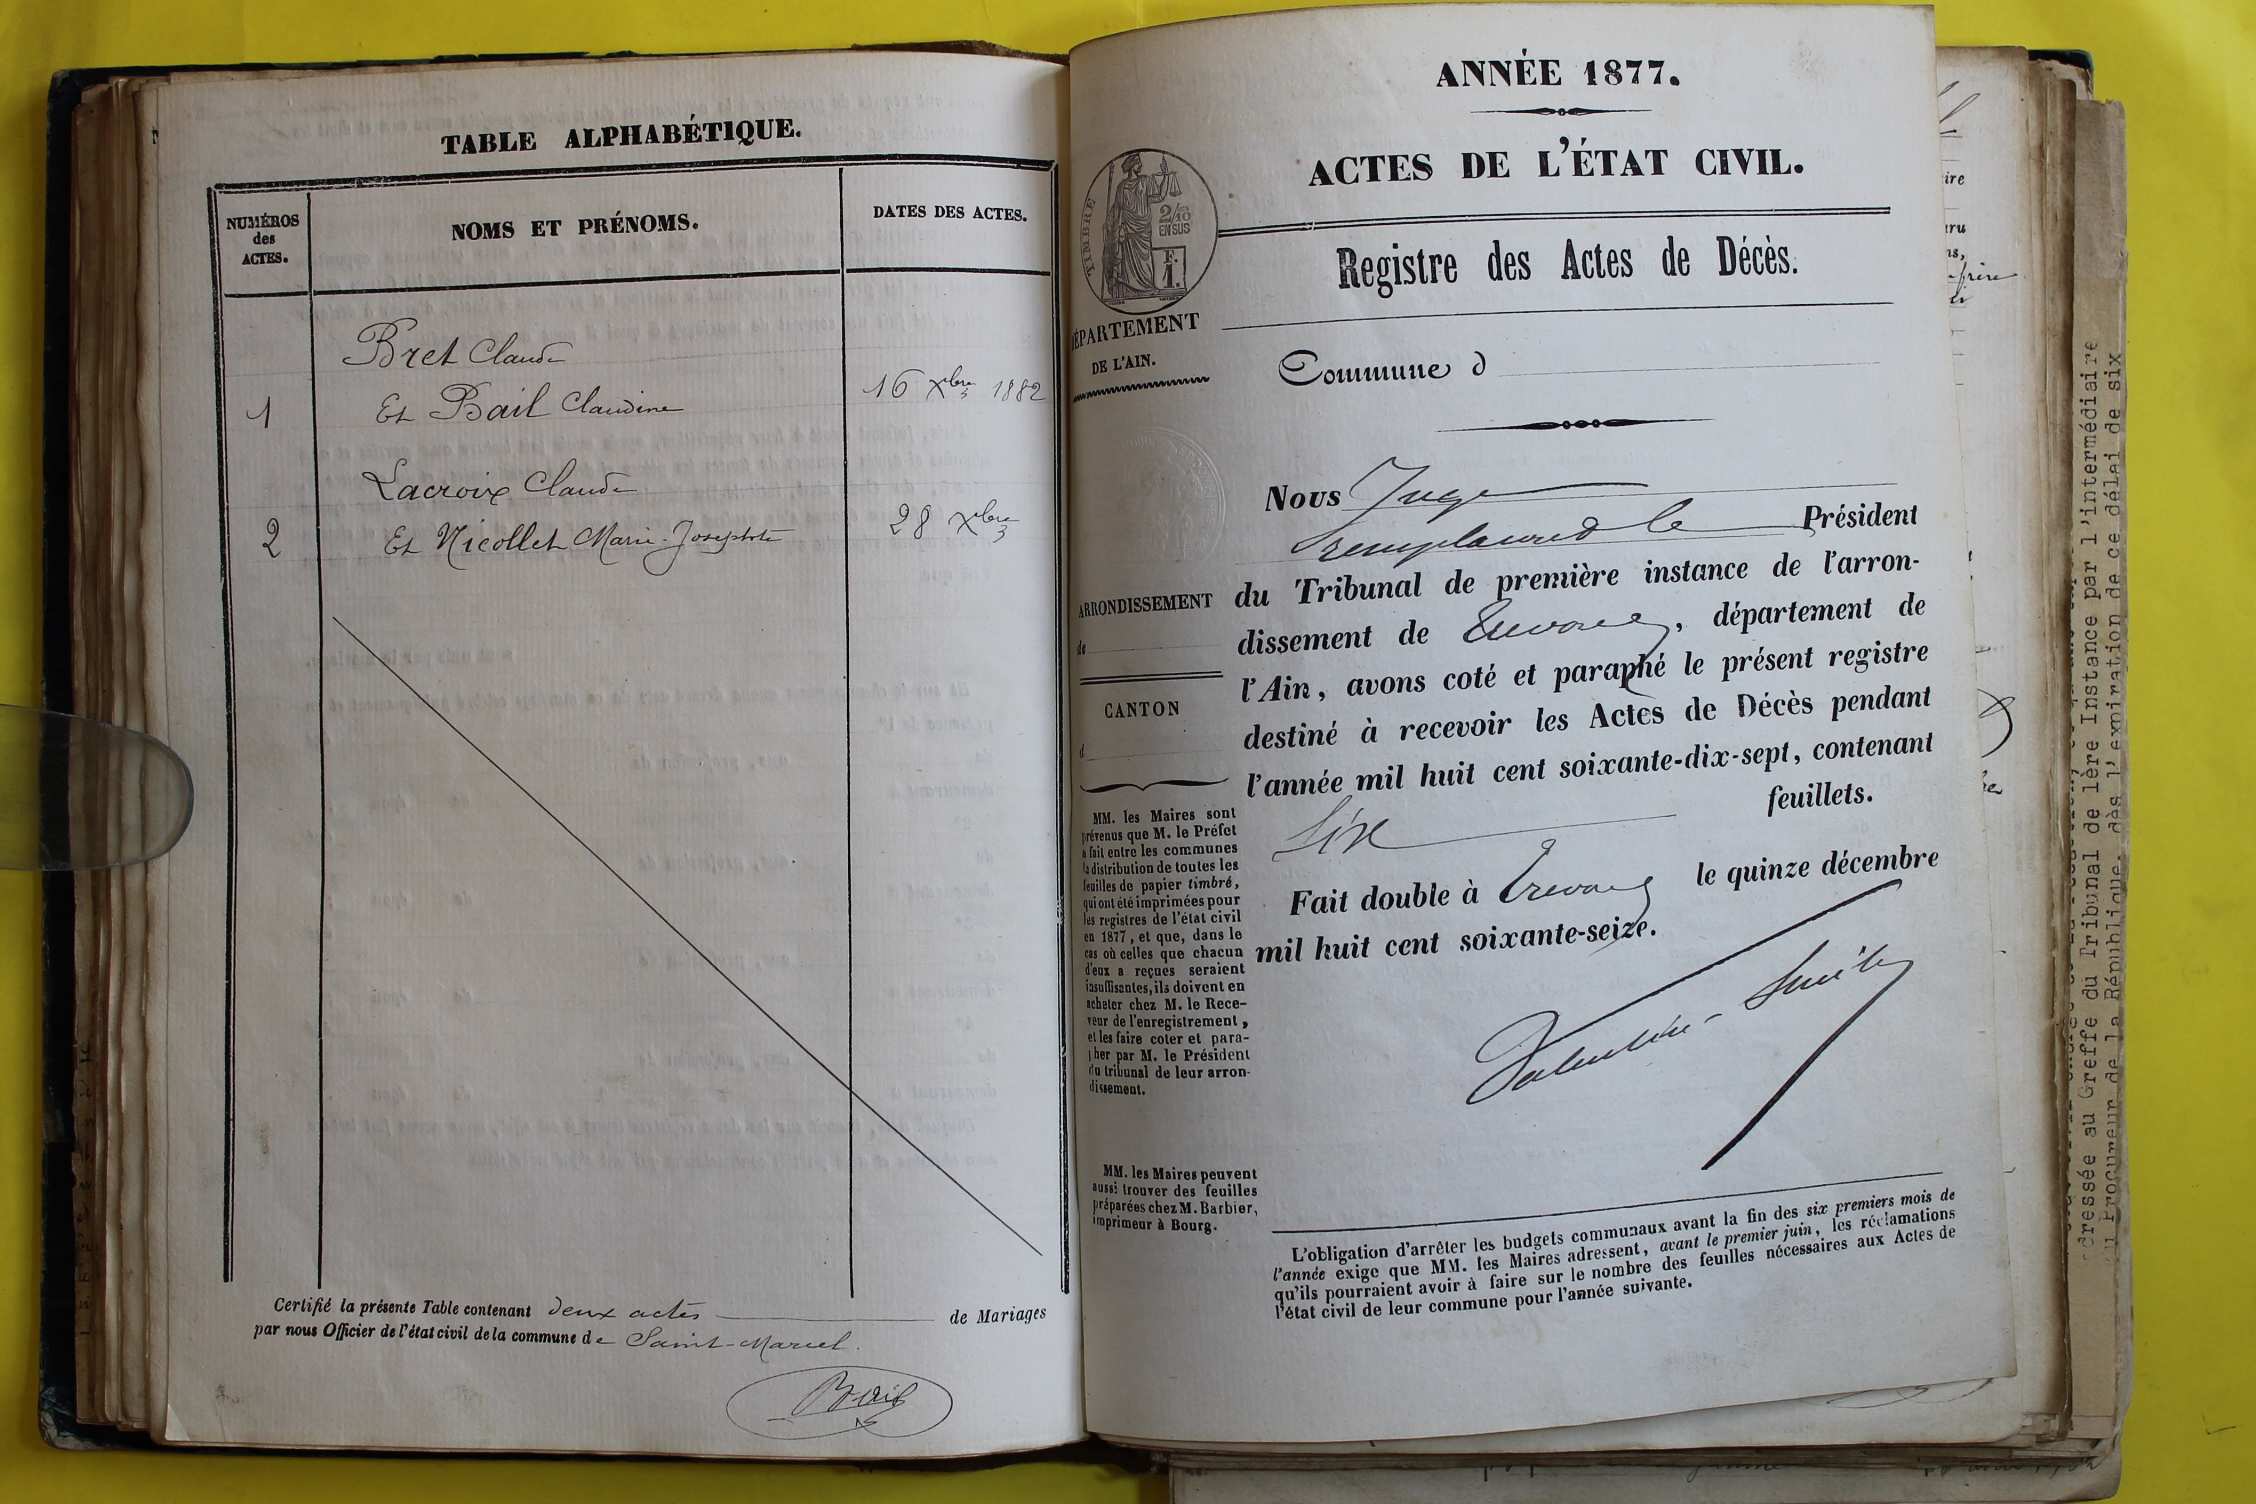 TABLE ALPHABÉTIQUE.
NUMÉROS
des
ACTES.
NOMS ET PRÉNOMS.
DATES DES ACTES.
Bret Claude
1 Et Bail Claudine 16 Xbre 1882
Lacroix Claude
2 Et Nicollet Marie-Josephte 28 Xbre
Certifié la présente Table contenant deux actes de Mariages
par nous Officier de l'état civil de la commune de Saint-Marcel.
Bail
ANNÉE 1877.
ACTES DE L'ÉTAT CIVIL.
TIMBRE
2/10
EN SUS
F.
1.
Registre des Actes de Décès.
DÉPARTEMENT
DE L'AIN.
Commune d
Nous Juge
remplaçant le Président
du Tribunal de première instance de l'arron-
dissement de Trévoux, département de
l'Ain, avons coté et paraphé le présent registre
destiné à recevoir les Actes de Décès pendant
l'année mil huit cent soixante-dix-sept, contenant
Six feuillets.
Fait double à Trévoux le quinze décembre
mil huit cent soixante-seize.
ARRONDISSEMENT
de
CANTON
d
MM. les Maires sont
prévenus que M. le Préfet
a fait entre les communes
la distribution de toutes les
feuilles de papier timbré,
qui ont été imprimées pour
les registres de l'état civil
en 1877, et que, dans le
cas où celles que chacun
d'eux a reçues seraient
insuffisantes, ils doivent en
acheter chez M. le Rece-
veur de l'enregistrement,
et les faire coter et para-
pher par M. le Président
du tribunal de leur arron-
dissement.
MM. les Maires peuvent
aussi trouver des feuilles
préparées chez M. Barbier,
imprimeur à Bourg.
L'obligation d'arrêter les budgets communaux avant la fin des six premiers mois de
l'année exige que MM. les Maires adressent, avant le premier juin, les réclamations
qu'ils pourraient avoir à faire sur le nombre des feuilles nécessaires aux Actes de
l'état civil de leur commune pour l'année suivante.
adressée au Greffe du Tribunal de 1ère Instance par l'intermédiaire
du Procureur de la République, dès l'expiration de ce délai de six